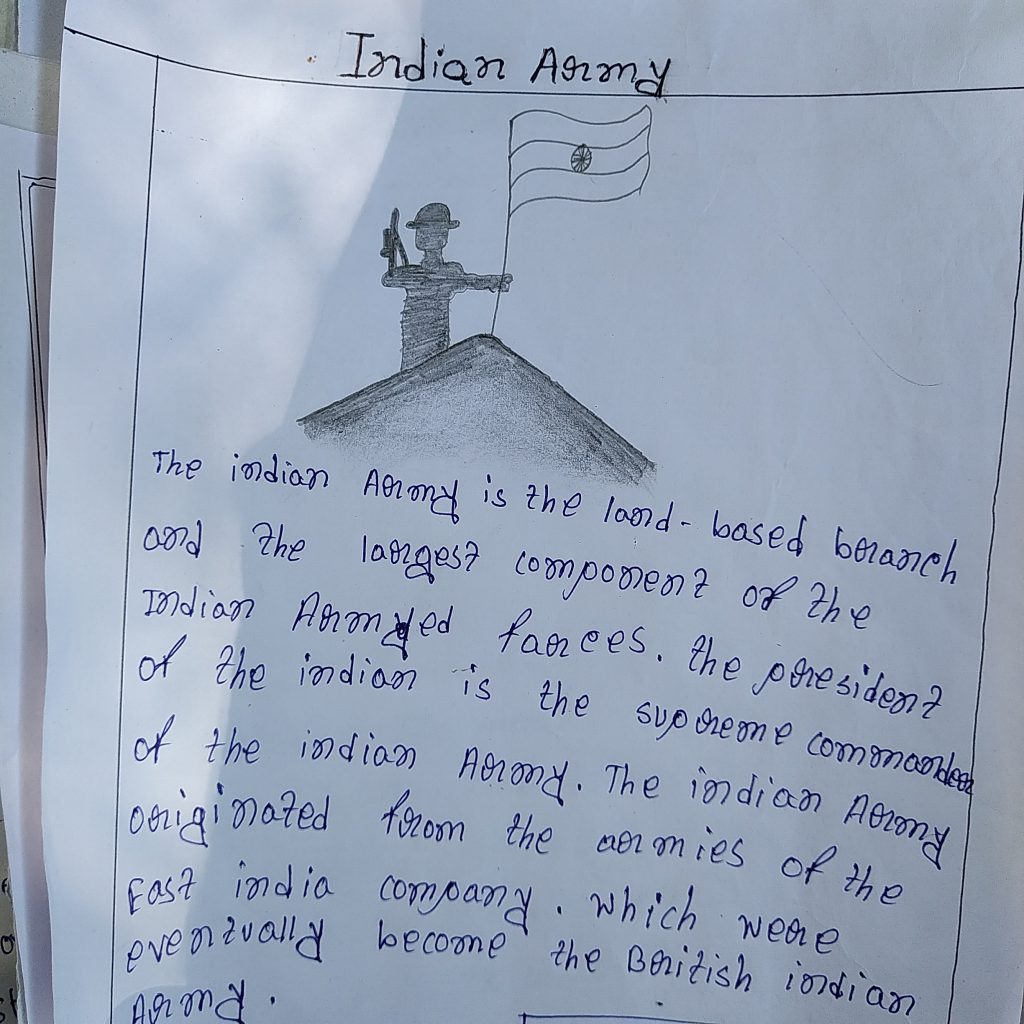 Indian Army
The indian Army is the land-based branch
and the largest component of the
Indian Armyed forces. the president
of the indian is the supreme commander
of the indian Army. The indian Army
originated from the armies of the
East india company. which were
eventually become the British indian
Army.